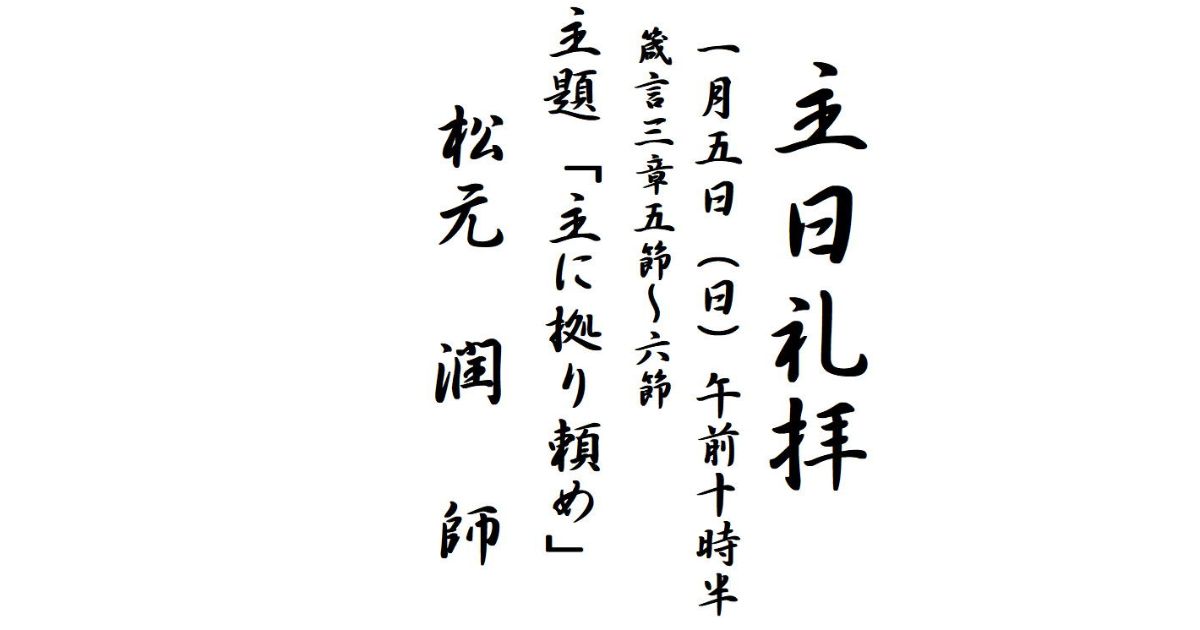 主日礼拝
一月五日(日)午前十時半
箴言三章五節~六節
主題「主に拠り頼め」
松元 潤 師